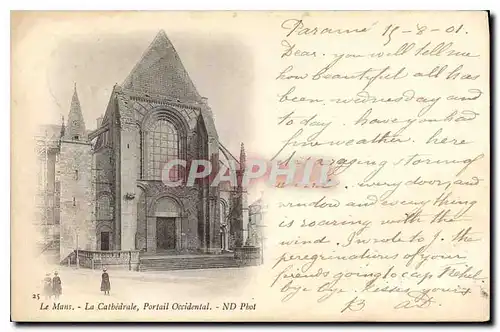 Paramé 15-8-01.
Dear. you will tell me
how beautiful all has
been, wednesday and
to day. have you had
fine weather. here
raging storming
every door and
window and everything
is roaring with the
wind. I wrote to J. the
peregrinations of your
friends going to cap
bye bye. Kisses yours
25
Le Mans. - La Cathédrale, Portail Occidental. - ND Phot
CPAPHIL